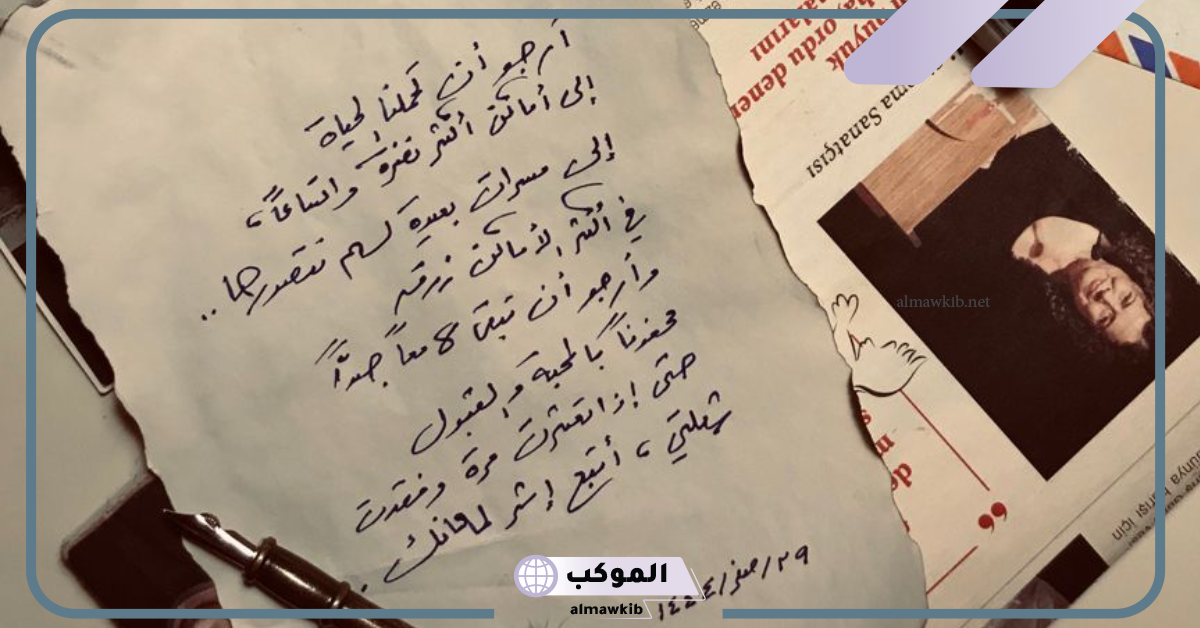 أرجو أن تحملنا الحياة
إلى أماكن أكثر نضرة واتساعاً،
إلى مسرات بعيدة لم نتصورها..
في أكثر الأماكن زرقة
وأرجو أن تبقى لامعاً جداً
محفوفاً بالمحبة والقبول
حتى إذا تعثرت مرة وفقدت
شعلتي، أتبع إثر لمعانك.
٢٩/صفر/١٤٤٤
büyük
ordu
Sanatçısı
almawkib.net
için
الموكب
almawkib